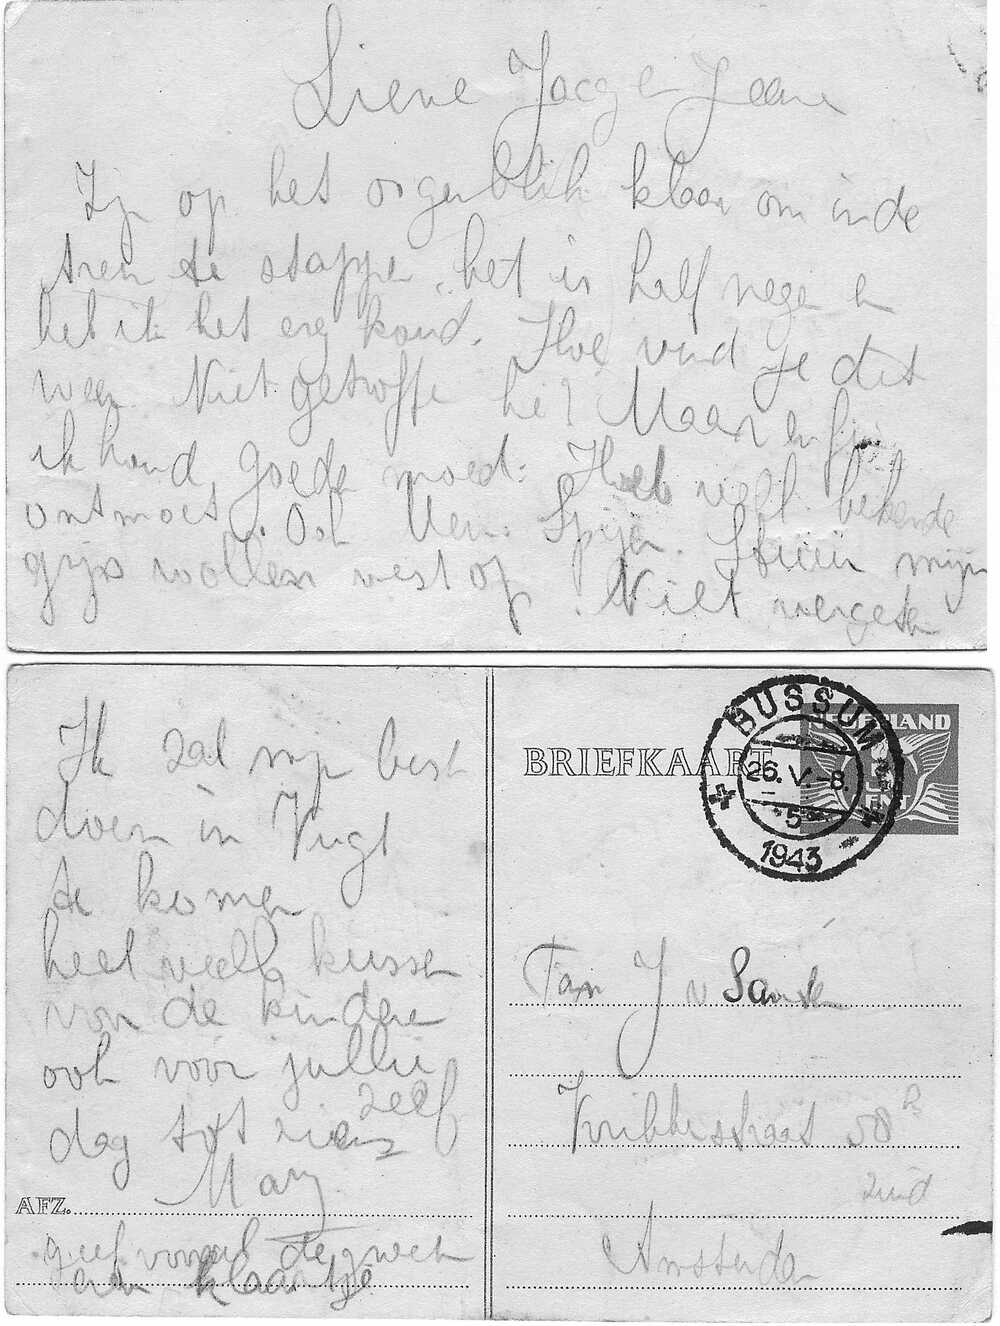 Lieve Jacq en Jeane
Zijn op het oogenblik klaar om in de
trein te stappe, het is half nege en
heb ik het erg koud. Hoe vind je dit
weer Niet getroffe hè! Maar enfin
ik houd goede moed. Heb veel bekende
ontmoet. Ook Spijer. Stuur mijn
grijs wollen vest op. Niet vergeten
Ik zal mijn best
doen in Vugt
te komen
heel veele kussen
voor de kindere
ook voor jullie
zelf
dag tot ziens
Mary
AFZ.
geef vooral
aan Klaartje
BRIEFKAART
NEDERLAND
BUSSUM
26.V.-8.
5
1943
Fam J v Santen
58
zuid
Amsterdam